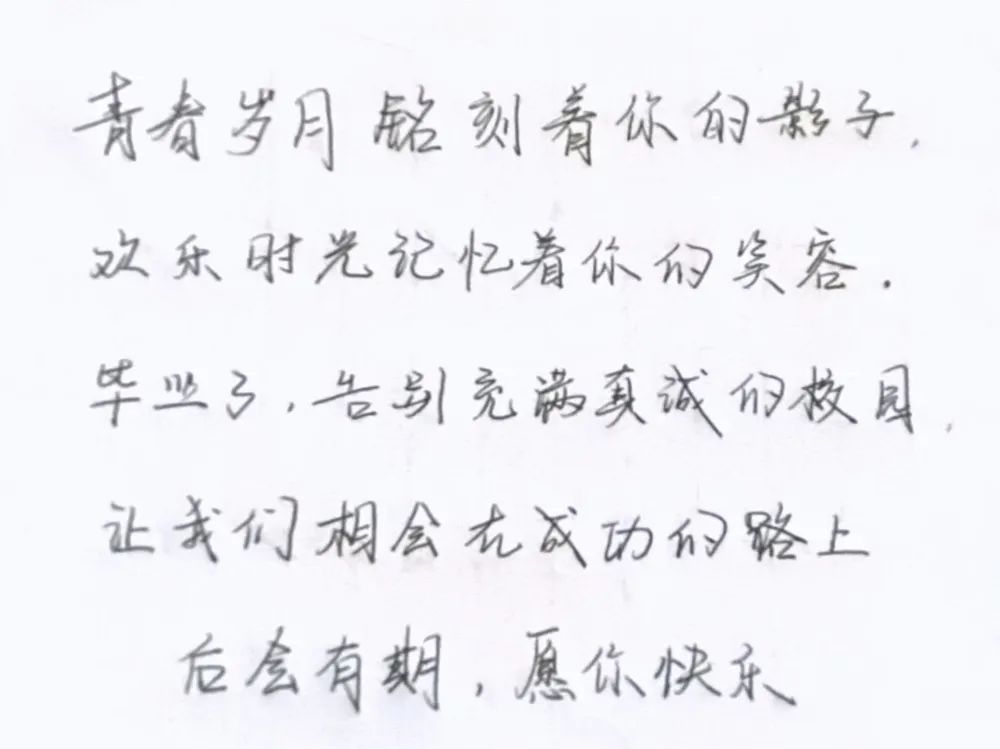 青春岁月铭刻着你的影子,
欢乐时光记忆着你的笑容.
毕业了,告别充满真诚的校园,
让我们相会在成功的路上
后会有期,愿你快乐